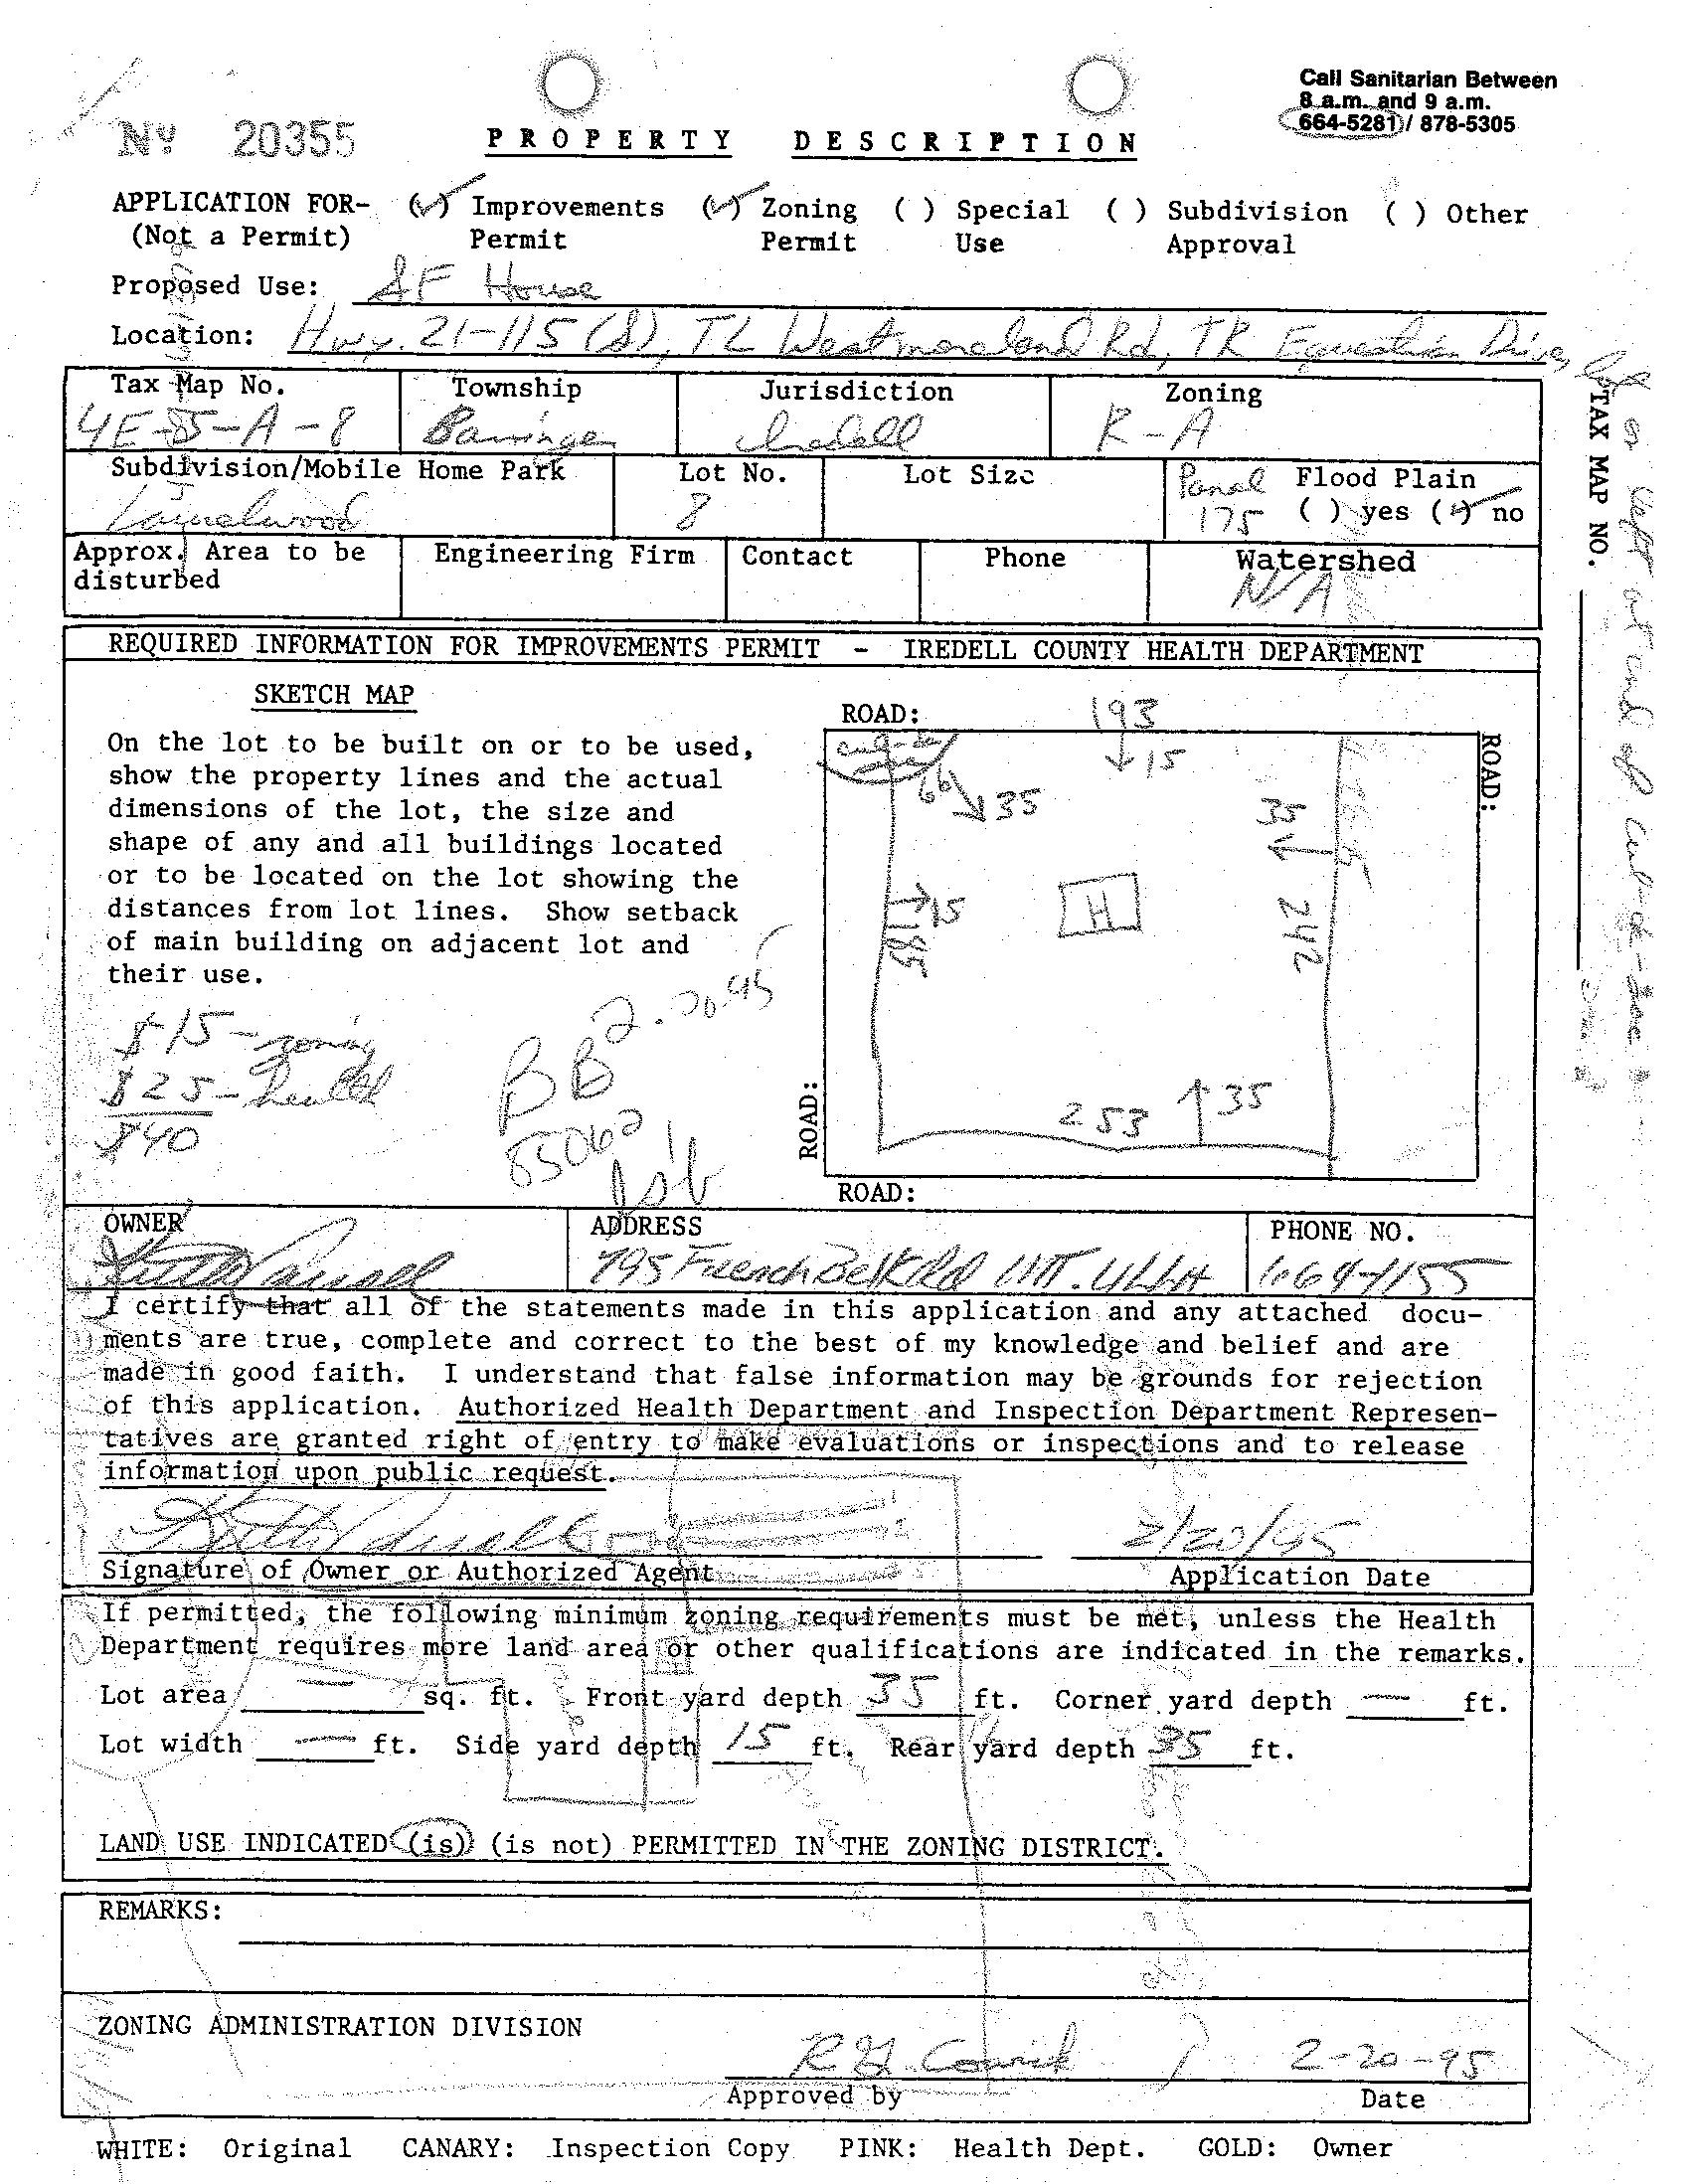 Call Sanitarian Between
8 a.m. and 9 a.m.
664-5281 / 878-5305
Nº 20355
PROPERTY DESCRIPTION
APPLICATION FOR- (✓) Improvements (✓) Zoning ( ) Special ( ) Subdivision ( ) Other
(Not a Permit) Permit Permit Use Approval
Proposed Use: SF House
Location: Hwy. 21-115 (S), TL Westmoreland Rd, TR Equestrian Drive, lot
8 is left at end of cul-de-sac
TAX MAP NO.
Tax Map No. Township Jurisdiction Zoning
4E-5-A-8 Barringer Iredell R-A
Subdivision/Mobile Home Park Lot No. Lot Size Panel Flood Plain
Laurelwood 8 175 ( ) yes (✓) no
Approx. Area to be Engineering Firm Contact Phone Watershed
disturbed N/A
REQUIRED INFORMATION FOR IMPROVEMENTS PERMIT - IREDELL COUNTY HEALTH DEPARTMENT
SKETCH MAP
On the lot to be built on or to be used,
show the property lines and the actual
dimensions of the lot, the size and
shape of any and all buildings located
or to be located on the lot showing the
distances from lot lines. Show setback
of main building on adjacent lot and
their use.
$15 - zoning
$25 - health
$40
BB 2.20.95
ROAD: 193
cul-de-sac
15
66 35
35
ROAD:
15
185
H
242
253 35
ROAD:
ROAD:
OWNER ADDRESS PHONE NO.
795 French Belk Rd MT. ULLA 664-1155
I certify that all of the statements made in this application and any attached docu-
ments are true, complete and correct to the best of my knowledge and belief and are
made in good faith. I understand that false information may be grounds for rejection
of this application. Authorized Health Department and Inspection Department Represen-
tatives are granted right of entry to make evaluations or inspections and to release
information upon public request.
2/20/95
Signature of Owner or Authorized Agent Application Date
If permitted, the following minimum zoning requirements must be met, unless the Health
Department requires more land area or other qualifications are indicated in the remarks.
Lot area — sq. ft. Front yard depth 35 ft. Corner yard depth — ft.
Lot width — ft. Side yard depth 15 ft. Rear yard depth 35 ft.
LAND USE INDICATED (is) (is not) PERMITTED IN THE ZONING DISTRICT.
REMARKS:
ZONING ADMINISTRATION DIVISION
2-20-95
Approved by Date
WHITE: Original CANARY: Inspection Copy PINK: Health Dept. GOLD: Owner